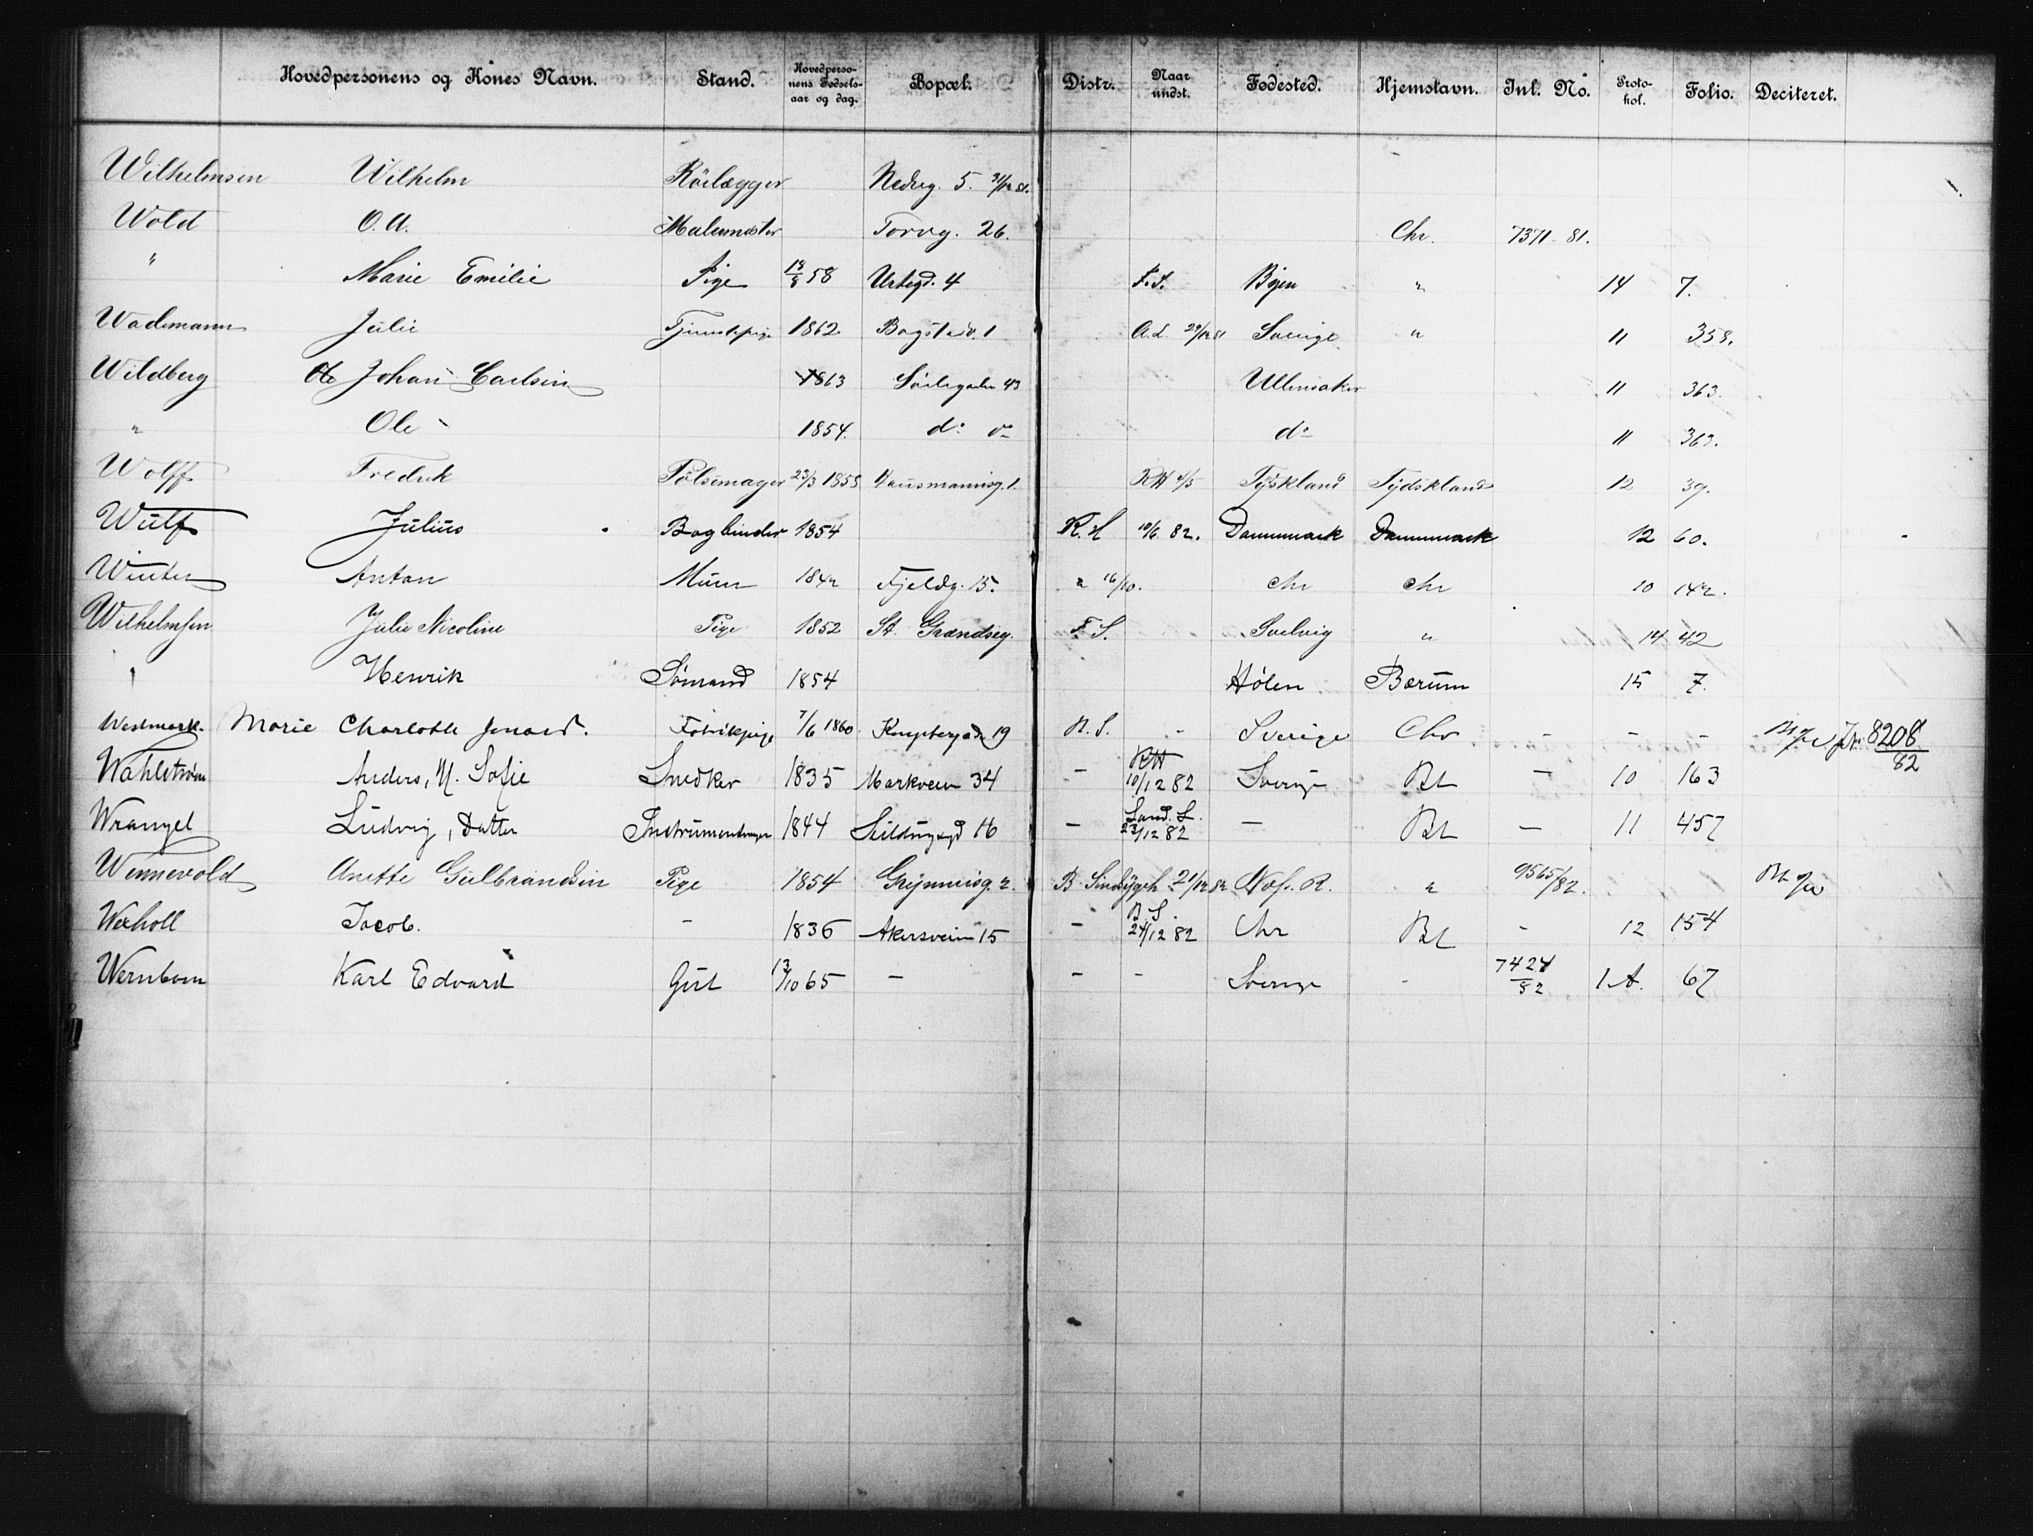 Hovedpersonens og Kones Navn. Stand. Hovedpersonens Fødselsaar og dag. Bopæl. Distr. Naar undst. Fødested. Hjemstavn. Inl. No. Protokol. Folio. Deciteret.
Wilhelmsen Wilhelm Rörlægger Nedreg. 5.
Wold O. A. Malermester Torvg. 26. Chr. 7371 81.
" Marie Emilie Pige 58 Urtegd. 4 F.S. Byen " 14 7.
Wademann Julie Tjenestepige 1862 Bogstadv. 1 A.L. Sverige " 11 358.
Wildberg Johan Carlsen 1863 43 Ullensaker 11 363.
" Ole 1854. do do do 11 363.
Wolff Fredrik Pølsemager 23/3 1855 RH 4/5 Tyskland Tydskland 12 39.
Wulf Julius Bogbinder 1854 R. H 10/6 82. Dannmark Dannmark 12 60.
Winter Anton Murer 1842 Fjeldg. 15. " 16/10. Chr Chr 10 142.
Wilhelmsen Julie Nicoline Pige 1852 St. Grændseg. F S. Svelvig " 14 42
" Henrik Sömand 1854 Hølen Bærum 15 7.
Westmark. Marie Charlotte Fabrikpige 7/6 1860 19 N. S. - Sverige Chr - - - Jr. 8208/82
Wahlström Anders, H. Sofie Snedker 1835 Markveien 34 - RH 10/12 82 Sverige Bl - 10 163
Wrangel Ludvig, Datter Instrumentmager 1844 Seildugsgd 16 - Sand. L. 23/12 82 - Bl - 11 457
Wennevold Anette Gulbrandsen Pige 1854 Grünnersg 2. B. 21/12 82 Næs. R. " 9565/82.
Wexholl Jacob. - 1836 Akersveien 15 - B. S. 24/12 82 Chr Bl - 12 154
Wernbom Karl Edvard Gut 13/10 65 - - - Sverige - 7424/82 1 A. 67